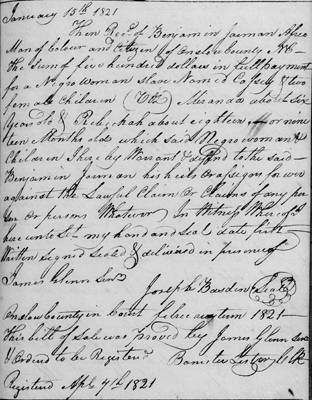 January 15th 1821
Then Recd of Benjamin Jarman A free
Man of Colour and Citizen of Onslow County NC
the Sum of five hundred dollars in full payment
for a Negro woman Slave Named Cassey & two
female Children (Vtz) Miranda about Six
Years old & Rebeckah about eighteen or nine
teen Months old which said Negro woman &
Children I here by Warrant & defend to the said
Benjamin Jarman his heirs or assigns for ever
against the Lawful Claim or Claims of any per
son or persons Whatever In Witness Where of I
here unto set my hand and seal date first
Written signed Sealed & delivered in presence of
James Glenn Senr
Joseph Basden (Seal)
Onslow County in Court February term 1821
This bill of sale was proved by James Glenn Senr
& Ordered to be Registered
Bannister Lester Clk
Registered Apl 4th 1821